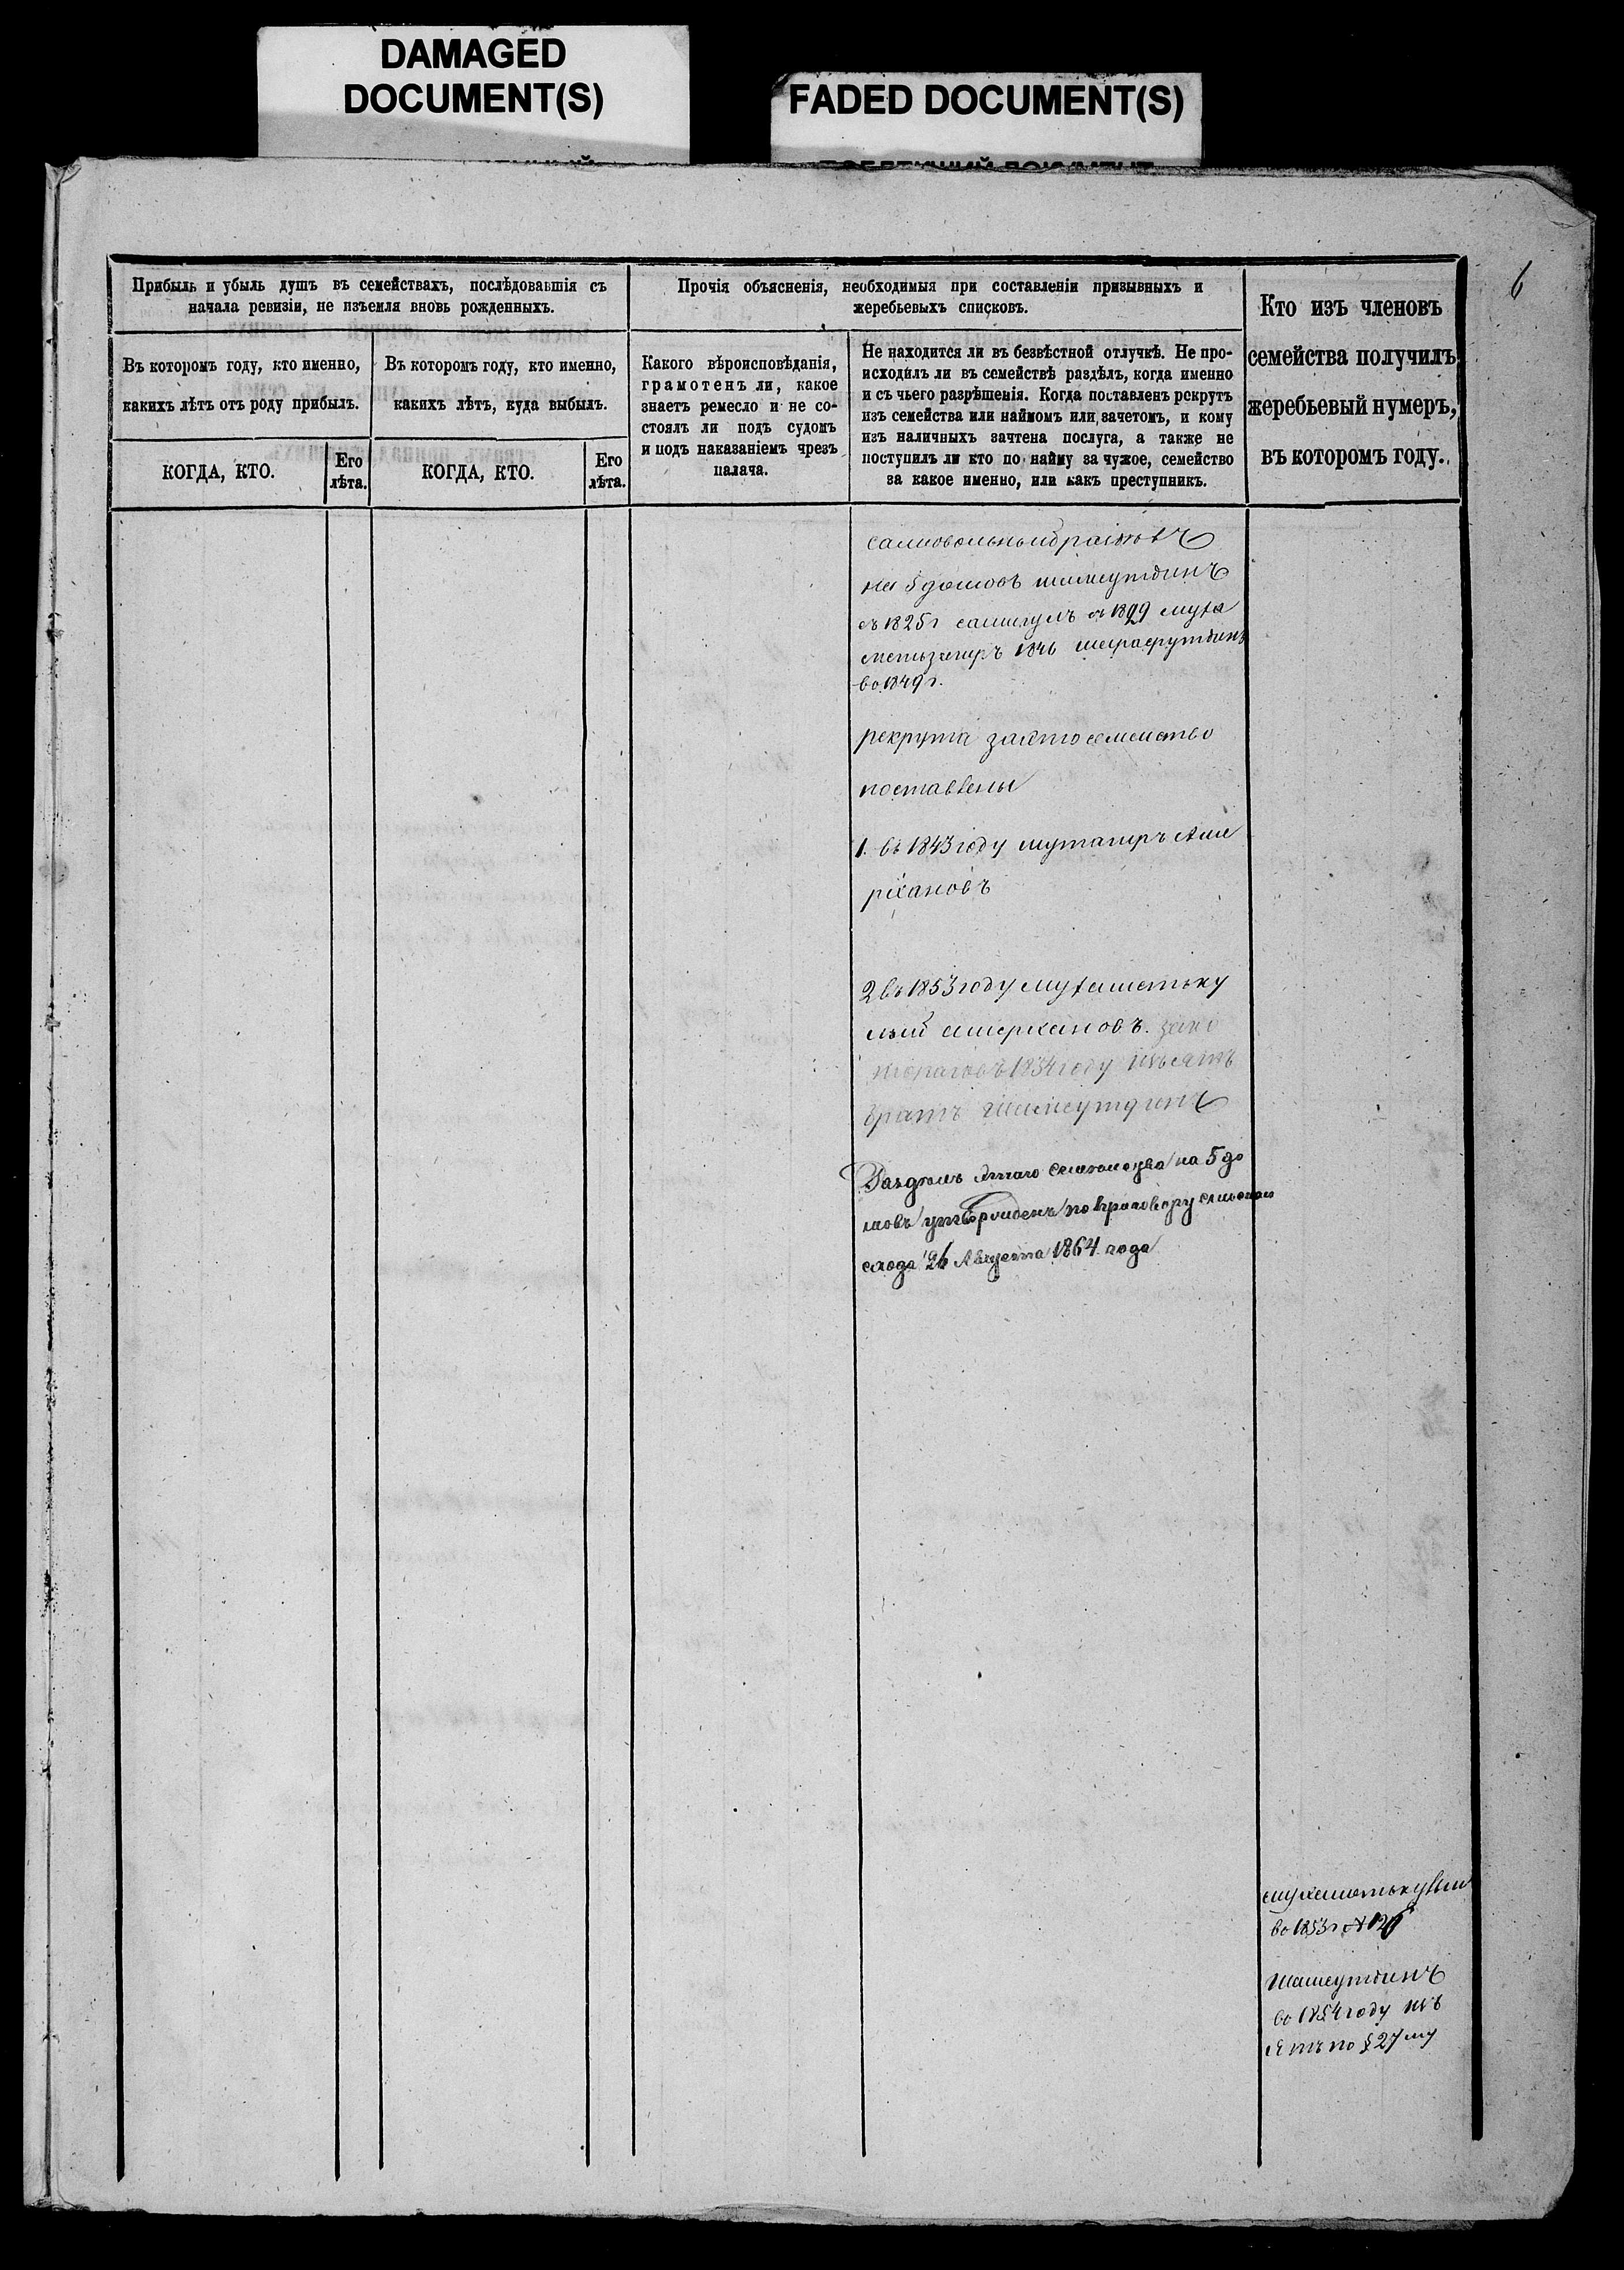 DAMAGED
DOCUMENT(S)
FADED DOCUMENT(S)
6
Прибыль и убыль душъ въ семействахъ, послѣдовавшія съ
начала ревизіи, не изъемля вновь рожденныхъ.
Въ которомъ году, кто именно,
какихъ лѣтъ отъ роду прибылъ.
КОГДА, КТО.
Его
лѣта.
Въ которомъ году, кто именно,
какихъ лѣтъ, куда выбылъ.
КОГДА, КТО.
Его
лѣта.
Прочія объясненія, необходимыя при составленіи призывныхъ и
жеребьевыхъ списковъ.
Какого вѣроисповѣданія,
грамотенъ ли, какое
знаетъ ремесло и не со-
стоялъ ли подъ судомъ
и подъ наказаніемъ чрезъ
палача.
Не находится ли въ безвѣстной отлучкѣ. Не про-
исходилъ ли въ семействѣ раздѣлъ, когда именно
и съ чьего разрѣшенія. Когда поставленъ рекрутъ
изъ семейства или наймомъ или зачетомъ, и кому
изъ наличныхъ зачтена послуга, а также не
поступилъ ли кто по найму за чужое, семейство
за какое именно, или какъ преступникъ.
Кто изъ членовъ
семейства получилъ
жеребьевый нумеръ,
въ которомъ году.
на 5 домовъ шамсутдинъ
съ 1825г самигулъ съ 1829 муха
метьзагиръ 1846 шарафутдинъ
во 1849 г.
рекрута заето семейство
поставлены
1. въ 1843 году мутагиръ Аме
рхановъ
2 въ 1853 году мухаметьку
лый амерхановъ. зако
1854 году изъятъ
братъ шамсутдинъ
Раздѣлъ этаго семейства на 5 до
мовъ утвержденъ по приговору сельскаго
схода 26 Августа 1864 года
мухаметькулый
во 1853г №
шамсутдинъ
во 1854 году изъ
ятъ по § 27му